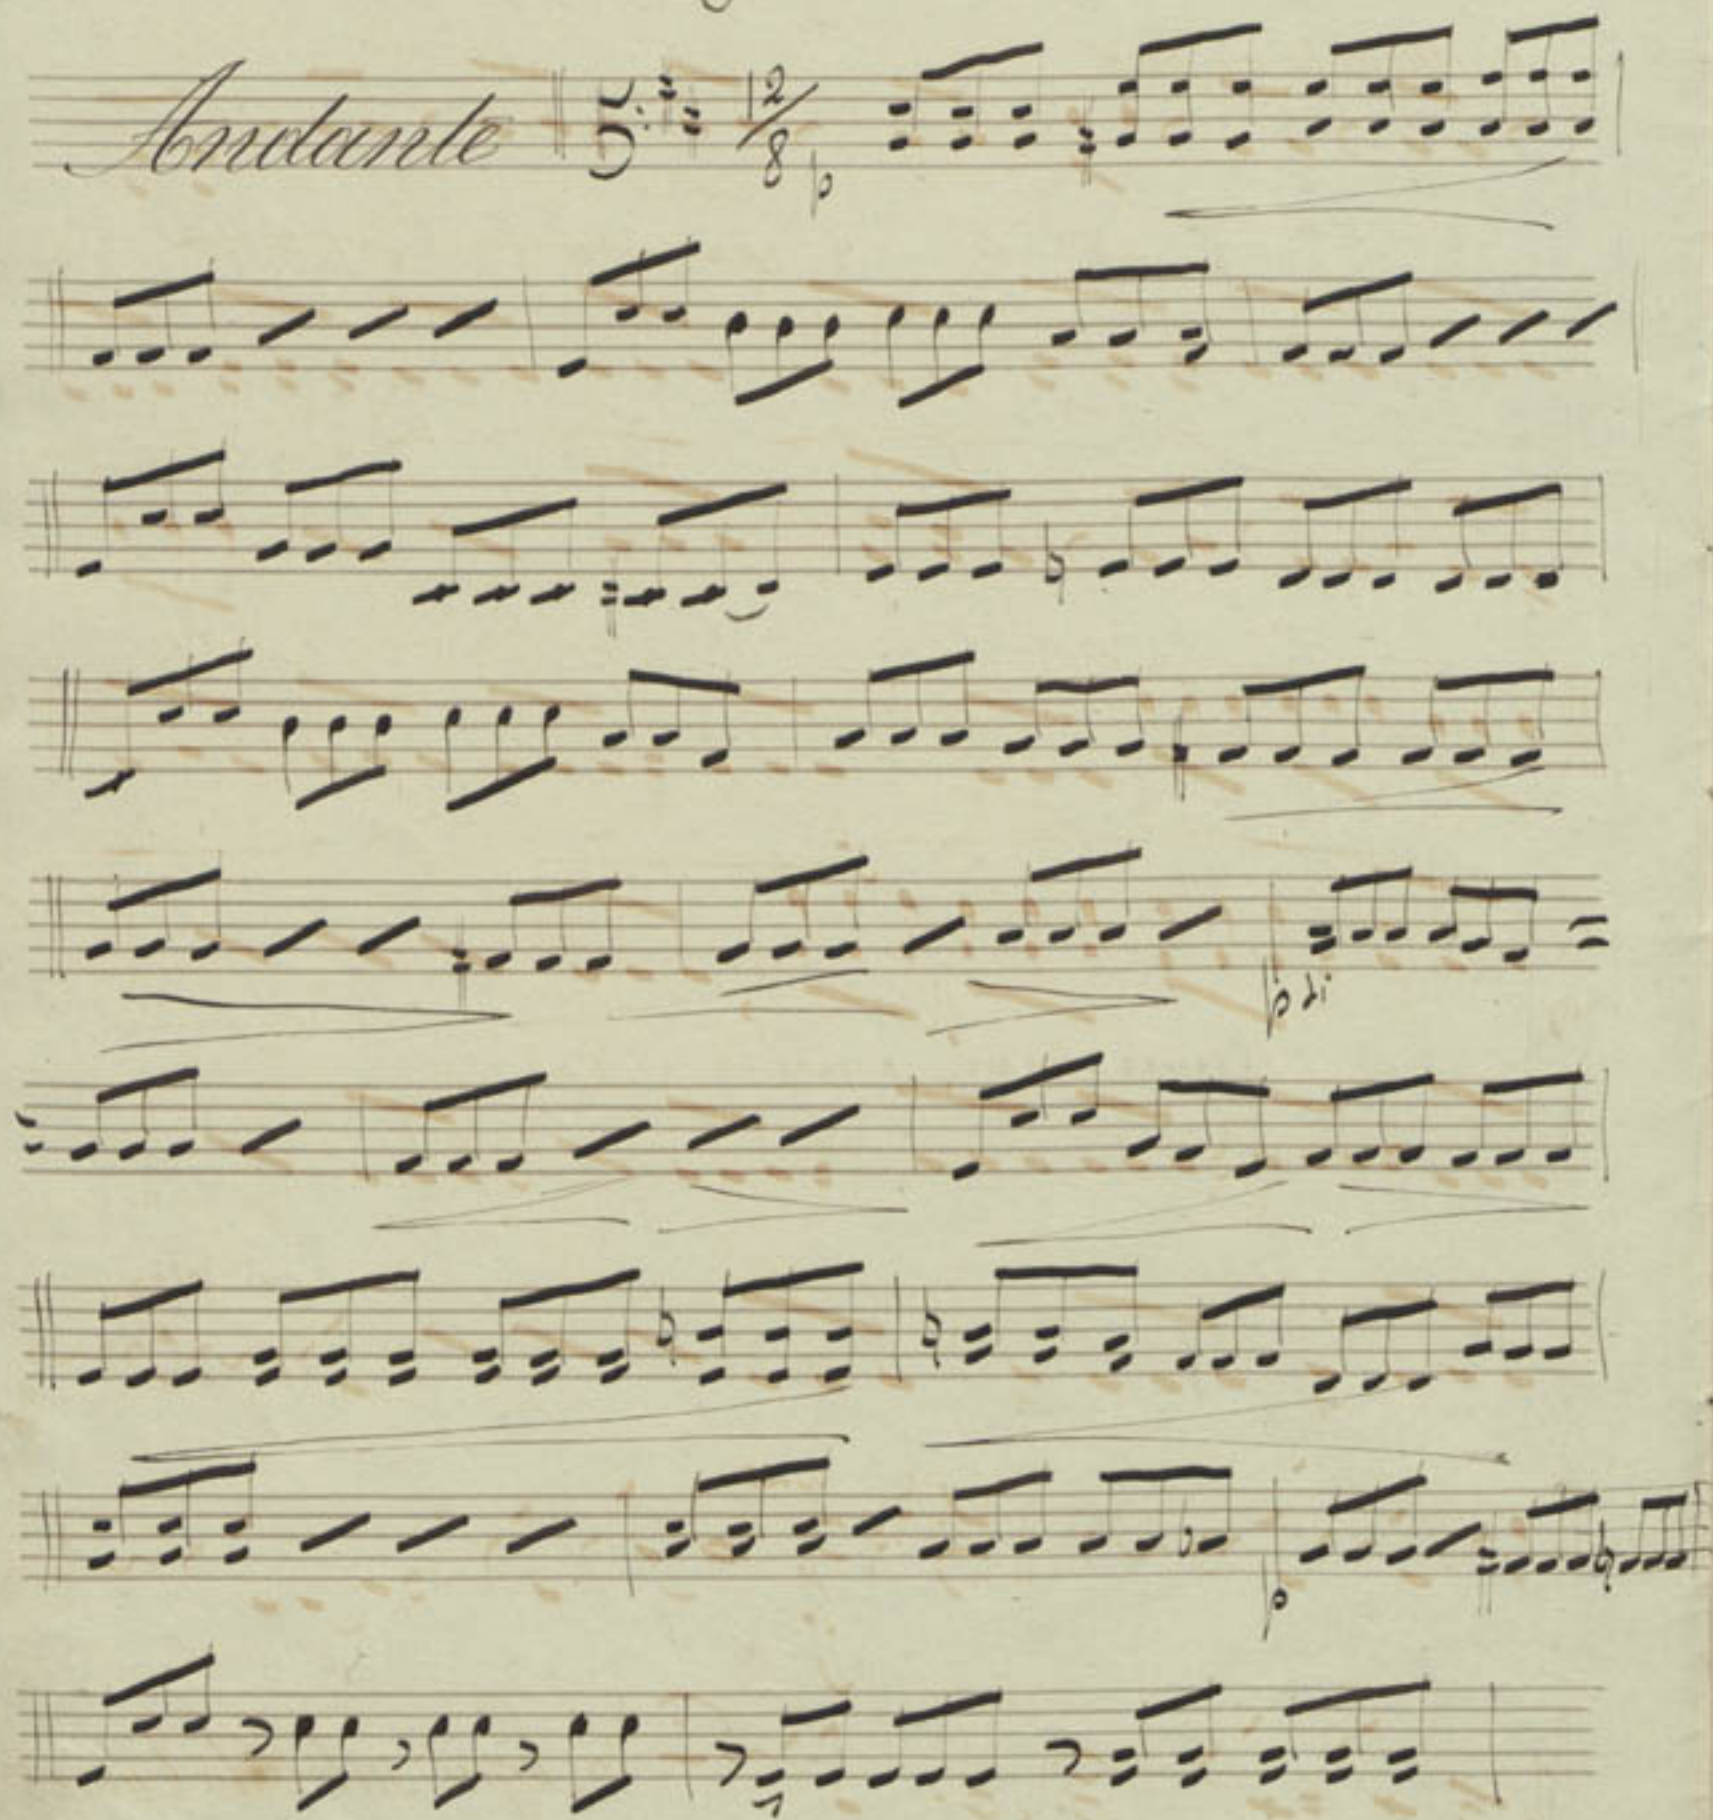 Andante 12/8 p
p
p